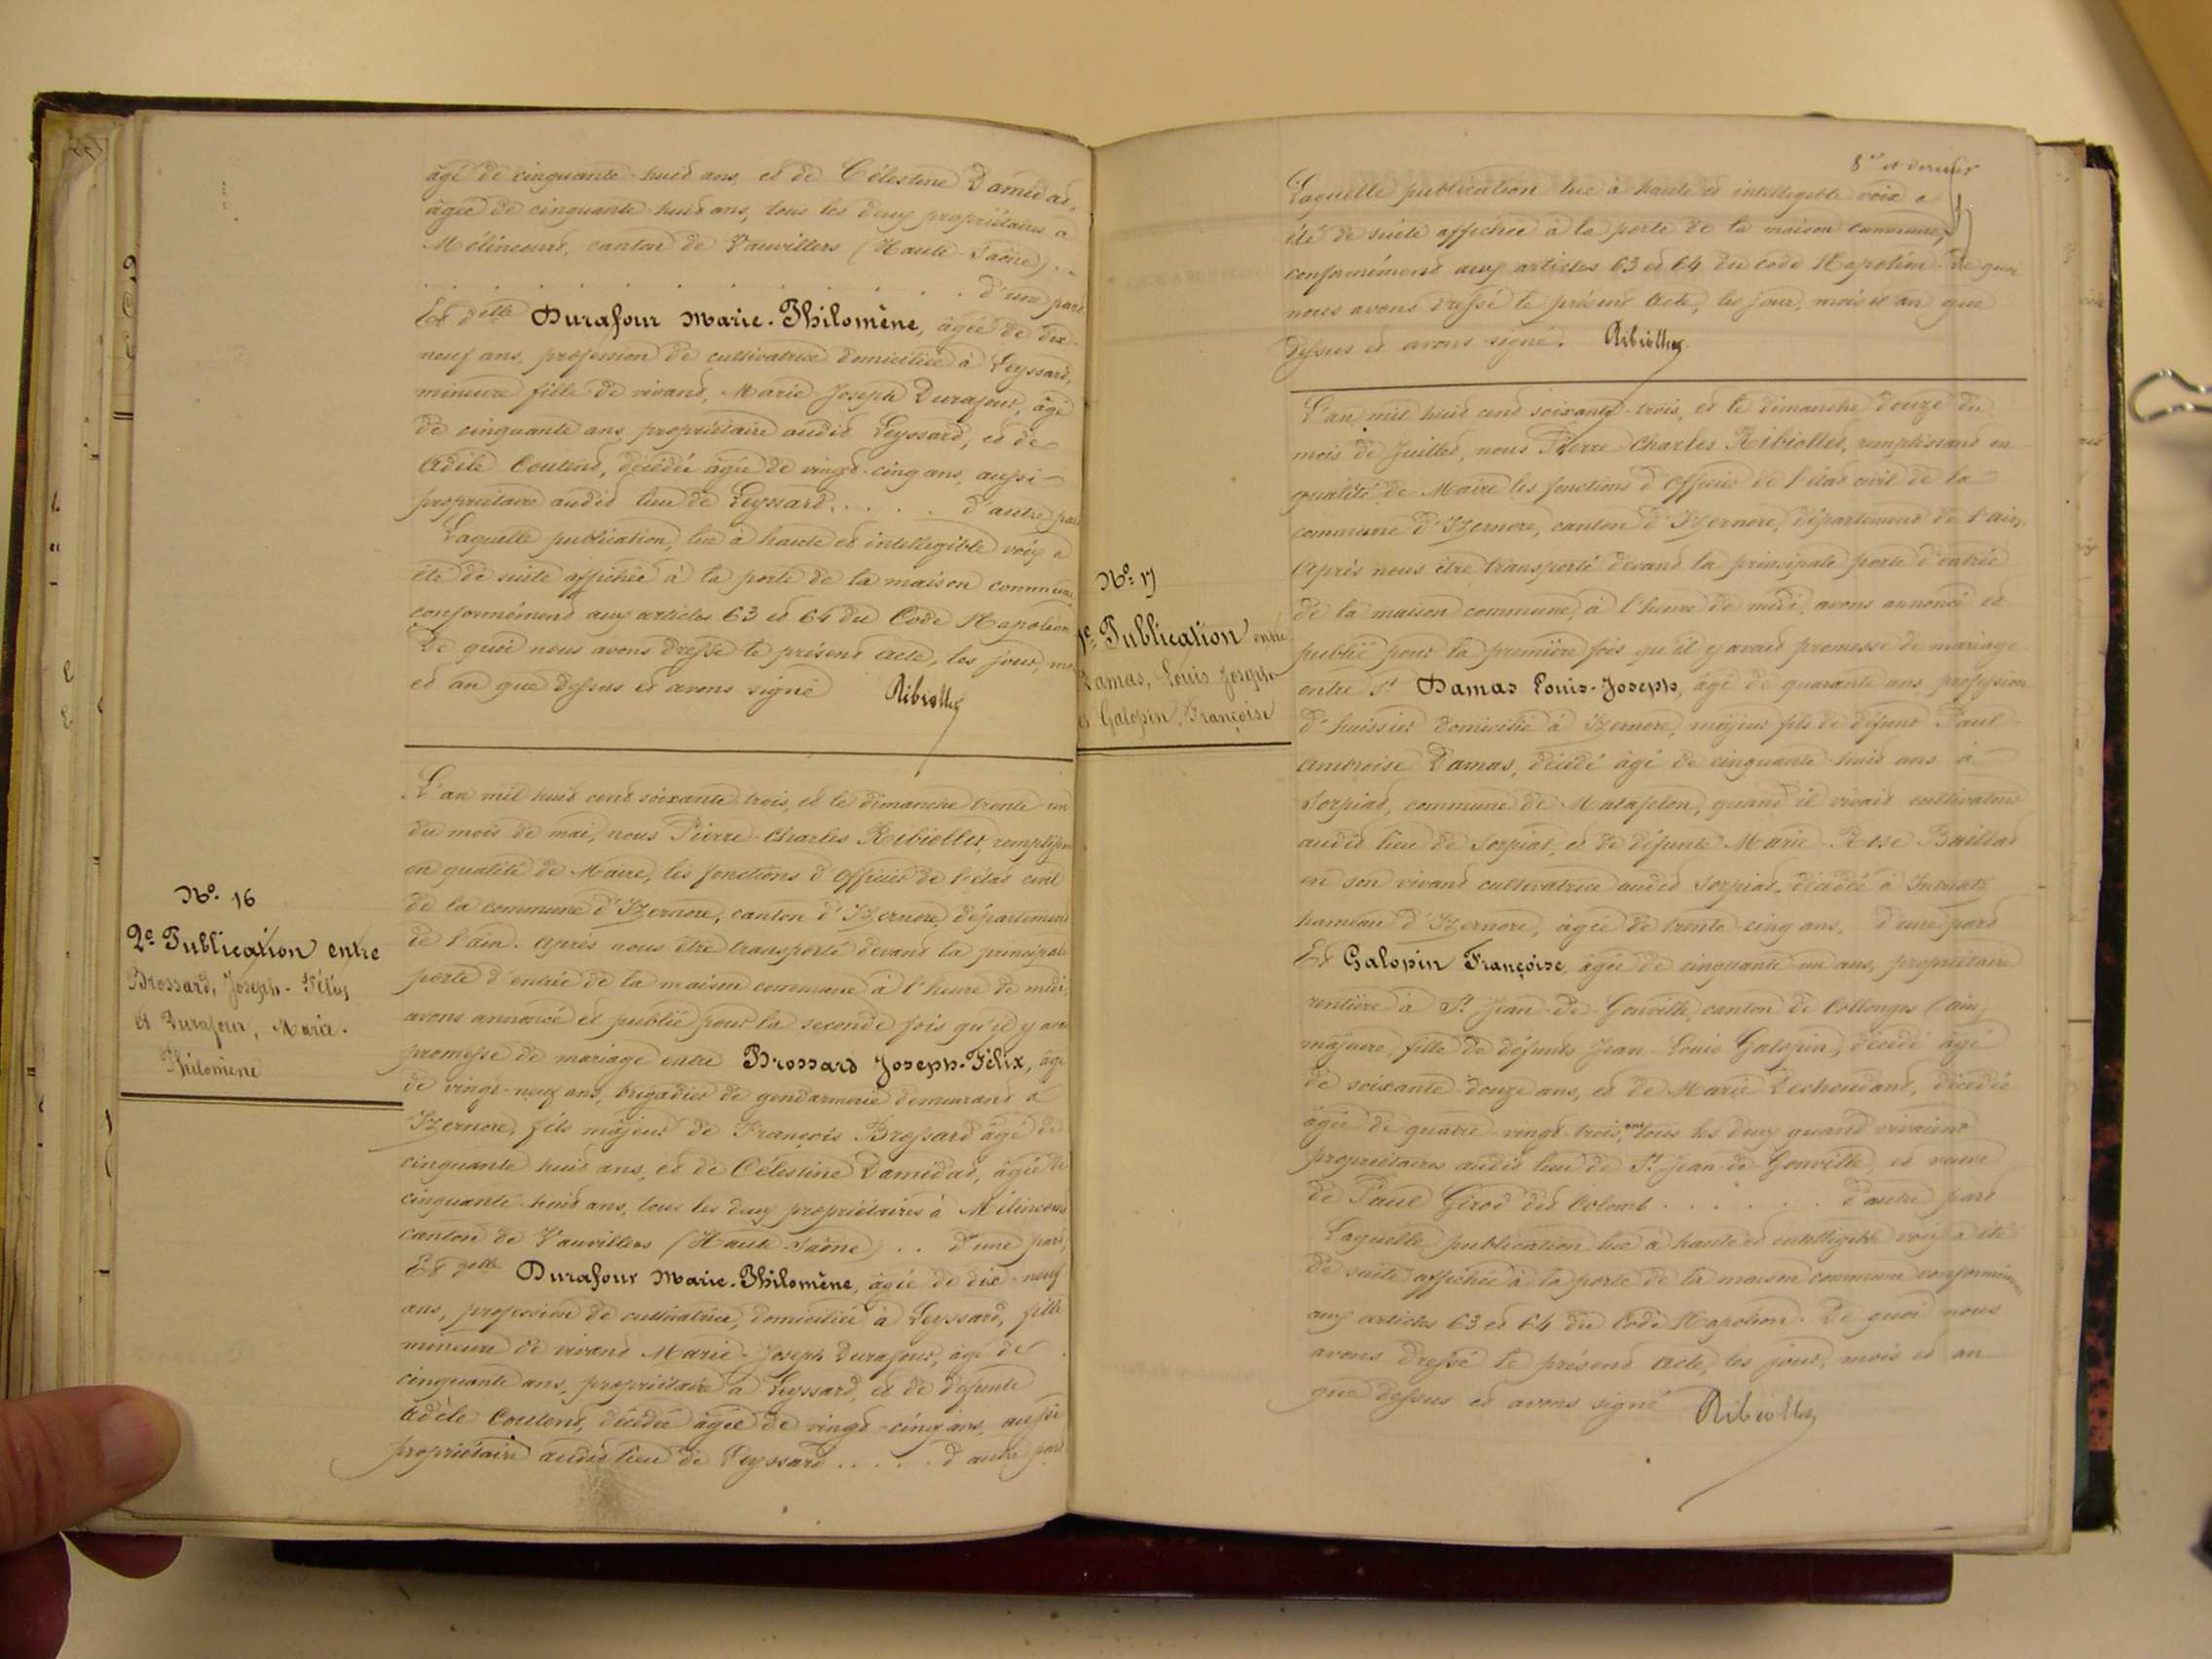 âgé de cinquante-huit ans et de Célestine Damidas,
âgée de cinquante-huit ans, tous les deux propriétaires à
Mélincourt, canton de Vauvillers (Haute-Saône) . .
. . . . . . . . . . . d'une part
Et delle Durafour Marie-Philomène, âgée de dix-
neuf ans, profession de cultivatrice domiciliée à Leyssard,
mineure fille de vivant, Marie-Joseph Durafour, âgé
de cinquante ans propriétaire audit Leyssard, et de
Adèle Coutent, décédée âgée de vingt-cinq ans, aussi
propriétaire audit lieu de Leyssard. . . . . d'autre part
Laquelle publication, lue à haute et intellegible voix a
été de suite affichée à la porte de la maison commune
conformément aux articles 63 et 64 du Code Napoléon
De quoi nous avons dressé le présent acte, les jour, mois
et an que dessus et avons signé Ribiollet
No. 16
2e Publication entre
Brossard, Joseph-Félix
et Durafour, Marie-
Philomène
L'an mil huit cent soixante-trois, et le dimanche trente-un
du mois de mai, nous Pierre-Charles Ribiollet, remplissant
en qualité de Maire, les fonctions d'officier de l'état civil
de la commune d'Izernore, canton d'Izernore, département
de l'ain. Après nous être transporté devant la principale
porte d'entrée de la maison commune à l'heure de midi,
avons annoncé et publié pour la seconde fois qu'il y avait
promesse de mariage entre Brossard Joseph-Félix, âgé
de vingt-neuf ans, brigadier de gendarmerie demeurant à
Izernore, fils majeur de François Brossard âgé de
cinquante huit ans, et de Célestine Damidas, âgée de
cinquante-huit ans, tous les deux propriétaires à Mélincourt
canton de Vauvillers (Haute-Saône) . . d'une part,
Et delle Durafour Marie-Philomène, âgée de dix-neuf
ans, profession de cultivatrice, domiciliée à Leyssard, fille
mineure de vivant Marie-Joseph Durafour, âgé de
cinquante ans, propriétaire à Leyssard, et de défunte
Adèle Coutent, décédée âgée de vingt-cinq ans, aussi
propriétaire audit lieu de Leyssard . . . . . d'autre part
8e et dernier
Laquelle publication lue à haute et intellegible voix a
été de suite affichée à la porte de la maison commune,
conformément aux articles 63 et 64 du Code Napoléon. De quoi
nous avons dressé le présent acte, les jour, mois et an que
dessus et avons signé. Ribiollet
No. 17
1e Publication entre
Damas, Louis Joseph
et Galopin, Françoise
L'an mil huit cent soixante-trois, et le dimanche douze du
mois de Juillet, nous Pierre-Charles Ribiollet, remplissant en
qualité de Maire les fonctions d'officier de l'état civil de la
commune d'Izernore, canton d'Izernore, département de l'ain,
Après nous être transporté devant la principale porte d'entrée
de la maison commune, à l'heure de midi, avons annoncé et
publié pour la première fois qu'il y avait promesse de mariage
entre Sr Damas Louis-Joseph, âgé de quarante ans, profession
d'huissier domicilié à Izernore, majeur fils de défunt Paul
Ambroise Damas, décédé âgé de cinquante-huit ans à
Sorpiat, commune de Matafelon, quand il vivait cultivateur
audit lieu de Sorpiat, et de défunte Marie-Rose Baillat
en son vivant cultivatrice audit Sorpiat, décédée à Intriat
hameau d'Izernore, âgée de trente cinq ans, d'une part
Et Galopin Françoise, âgée de cinquante-un ans, propriétaire
rentière à St Jean-de-Gonville canton de Collonges (ain)
majeure, fille de défunts Jean-Louis Galopin, décédé âgé
de soixante-douze ans, et de Marie Dechoudant, décédée
âgée de quatre-vingt-trois, ans tous les deux quand vivaient
propriétaires audit lieu de St Jean-de-Gonville, et veuve
de Paul Girod dit Colomb . . . . . . d'autre part
Laquelle publication lue à haute et intelligible voix a été
de suite affichée à la porte de la maison commune conformément
aux articles 63 et 64 du Code Napoléon. De quoi nous
avons dressé le présent acte, les jour, mois et an
que dessus et avons signé Ribiollet